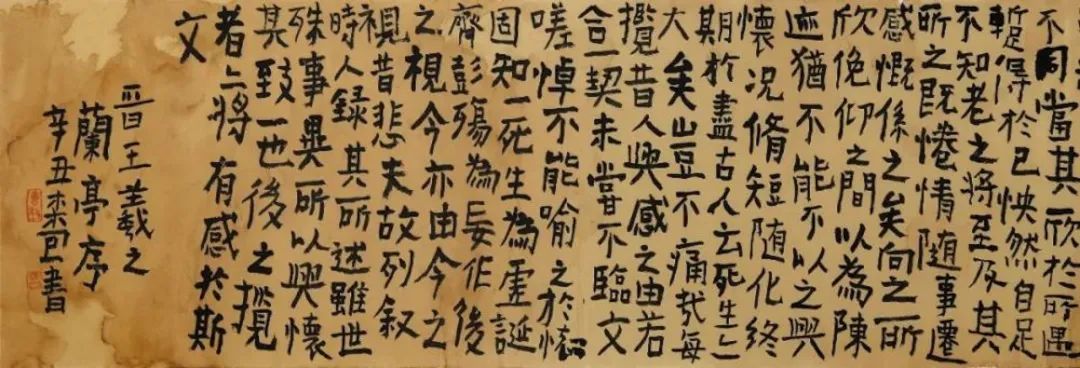 不同當其欣於所遇
蹔得於己怏然自足
不知老之將至及其
所之既惓情隨事遷
感慨係之矣向之所
欣俛仰之間以為陳
迹猶不能不以之興
懷况脩短随化終
期於盡古人云死生亦
大矣豈不痛哉每
攬昔人興感之由若
合一契未嘗不臨文
嗟悼不能喻之於懷
固知一死生為虛誕
齊彭殤為妄作後
之視今亦由今之
視昔悲夫故列叙
時人録其所述雖世
殊事異所以興懷
其致一也後之攬
者亦將有感於斯
文
晉王羲之
蘭亭序
辛丑書